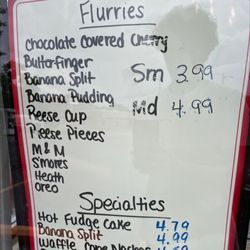 Flurries
Chocolate Covered Cherry
Butterfinger
Banana Split Sm 3.99
Banana Pudding Md 4.99
Reese Cup
Reese Pieces
M & M
S'mores
Heath
Oreo
Specialties
Hot Fudge Cake 4.79
Banana Split 4.99
Waffle Cone Nachos